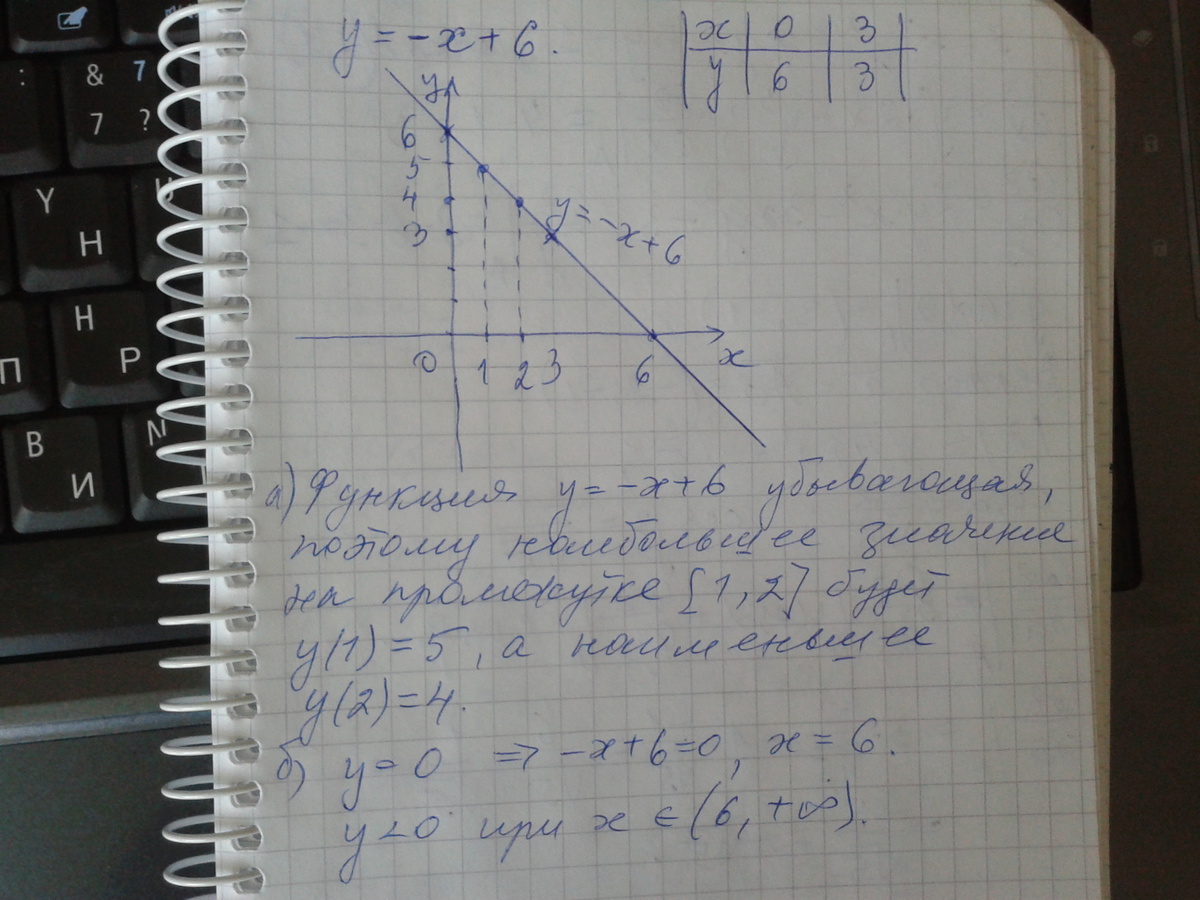 y = -x + 6.
x 0 3
y 6 3
y
6
5
4
3
y = -x + 6
0 1 2 3 6 x
а) Функция y = -x + 6 убывающая,
поэтому наибольшее значение
на промежутке [1, 2] будет
y(1) = 5, а наименьшее
y(2) = 4.
б) y = 0 ⇒ -x + 6 = 0, x = 6.
y < 0 при x ∈ (6, +∞).
& 7
7 ?
:
Y
Н
H
Р
П
B
И